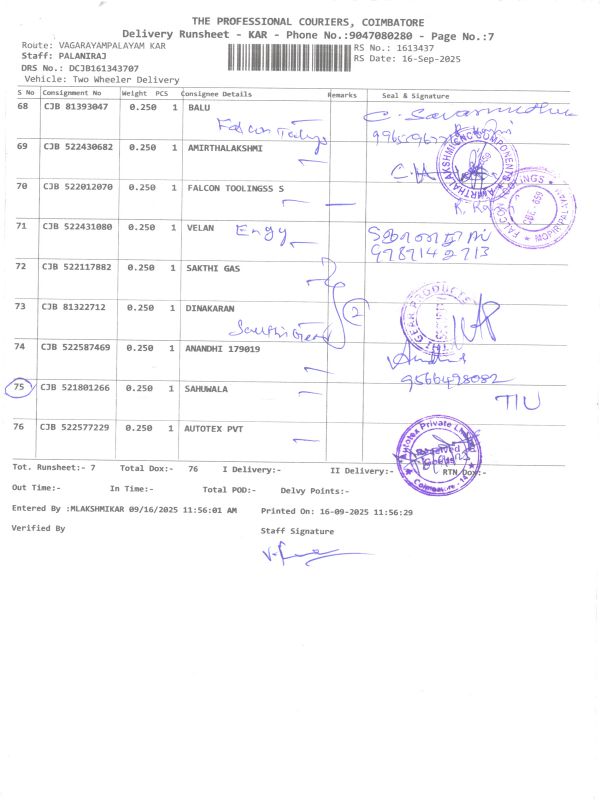 THE PROFESSIONAL COURIERS, COIMBATORE
Delivery Runsheet - KAR - Phone No.:9047080280 - Page No.:7
Route: VAGARAYAMPALAYAM KAR RS No.: 1613437
Staff: PALANIRAJ RS Date: 16-Sep-2025
DRS No.: DCJB161343707
Vehicle: Two Wheeler Delivery
S No Consignment No Weight PCS Consignee Details Remarks Seal & Signature
68 CJB 81393047 0.250 1 BALU
Falcon
69 CJB 522430682 0.250 1 AMIRTHALAKSHMI
70 CJB 522012070 0.250 1 FALCON TOOLINGSS S
71 CJB 522431080 0.250 1 VELAN
Engg
9787142713
72 CJB 522117882 0.250 1 SAKTHI GAS
73 CJB 81322712 0.250 1 DINAKARAN
2
Sakthi Gear
74 CJB 522587469 0.250 1 ANANDHI 179019
9566498082
75 CJB 521801266 0.250 1 SAHUWALA
TIU
76 CJB 522577229 0.250 1 AUTOTEX PVT
Autotex Private Limited
Received
Coimbatore - 14
Tot. Runsheet:- 7 Total Dox:- 76 I Delivery:- II Delivery:- RTN Dox:-
Out Time:- In Time:- Total POD:- Delvy Points:-
Entered By :MLAKSHMIKAR 09/16/2025 11:56:01 AM Printed On: 16-09-2025 11:56:29
Verified By Staff Signature